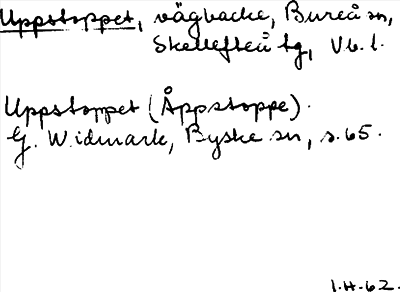 Uppstoppet, vägbacke, Bureå sn,
Skellefteå tg, Vb. l.
Uppstoppet (Åppstoppe).
G. Widmark, Byske sn, s. 65.
I.H.62.